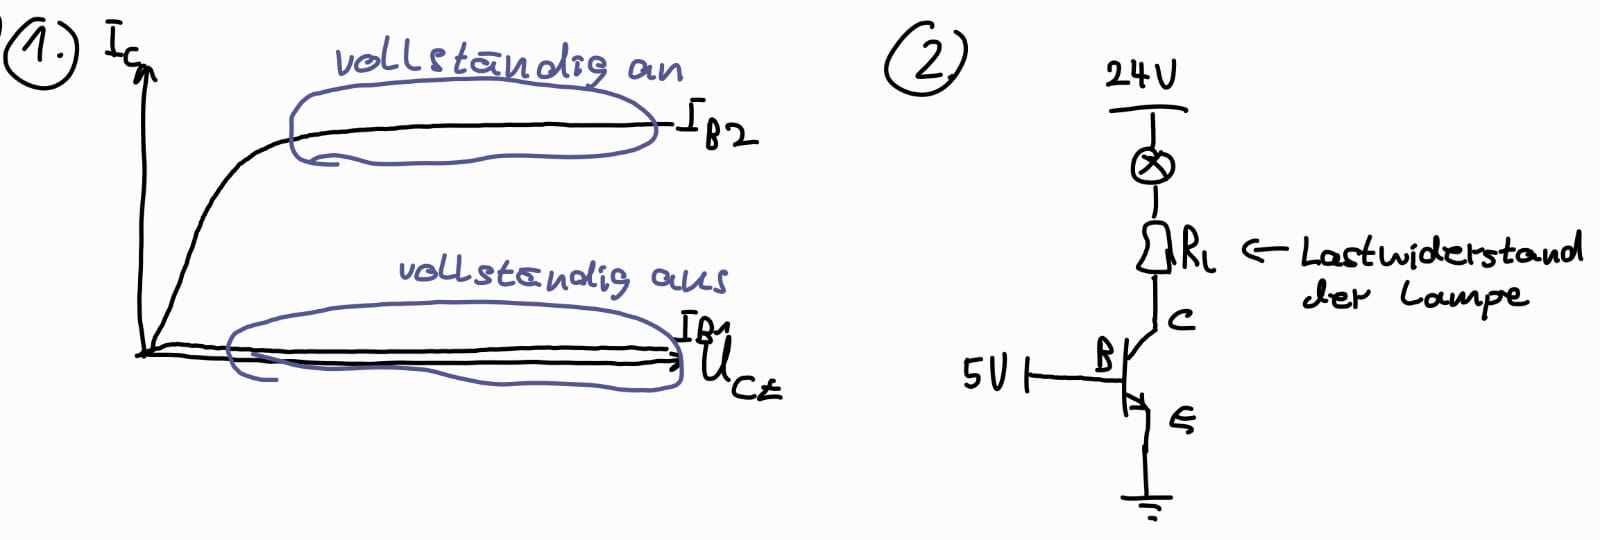 1.
I_C
vollständig an
I_B2
vollständig aus
I_B1
U_CE
2
24V
R_L ← Lastwiderstand
der Lampe
C
B
5V
E